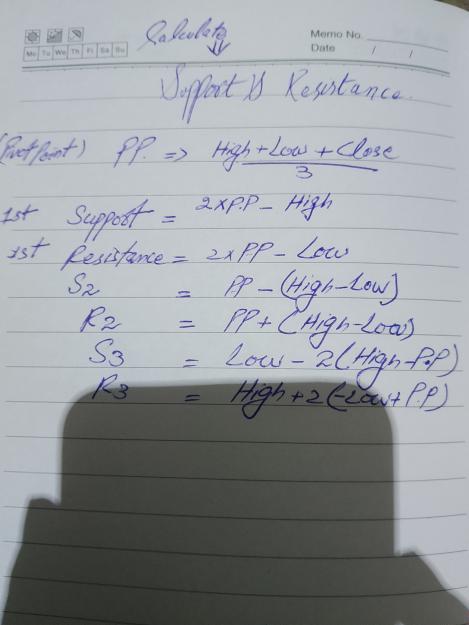 Calculate
Memo No.
Mo Tu We Th Fr Sa Su
Date / /
Support & Resistance.
(Pivot Point) PP. => High + Low + Close
3
1st Support = 2xP.P - High
1st Resistance = 2xPP - Low
S2 = PP - (High - Low)
R2 = PP + (High - Low)
S3 = Low - 2(High - P.P)
R3 = High + 2(-Low + P.P)